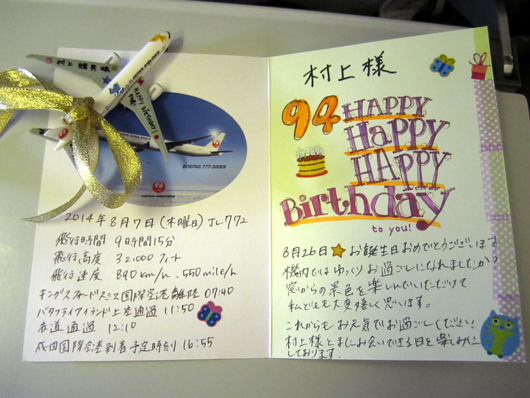 HAPPY BIRTHDAY
BOEING 777-200ER
2014年8月7日(木曜日) JL772
飛行時間 9時間15分
飛行高度 32,000フィート
飛行速度 890km/h、550mile/h
キングスフォードスミス国際空港離陸 07:40
バタフライアイランド上空通過 11:50
赤道通過 12:10
成田国際空港到着予定時刻 16:55
村上様
94 HAPPY
HaPPY
HAPPY
Birthday
to you!
8月26日 お誕生日おめでとうございます
機内ではゆっくりお過ごしになれましたか?
窓からの景色を楽しんでいただけて
私どもも大変嬉しく思います。
これからもお元気でお過ごしください!
村上様とまたお会いできる日を楽しみに
しております。